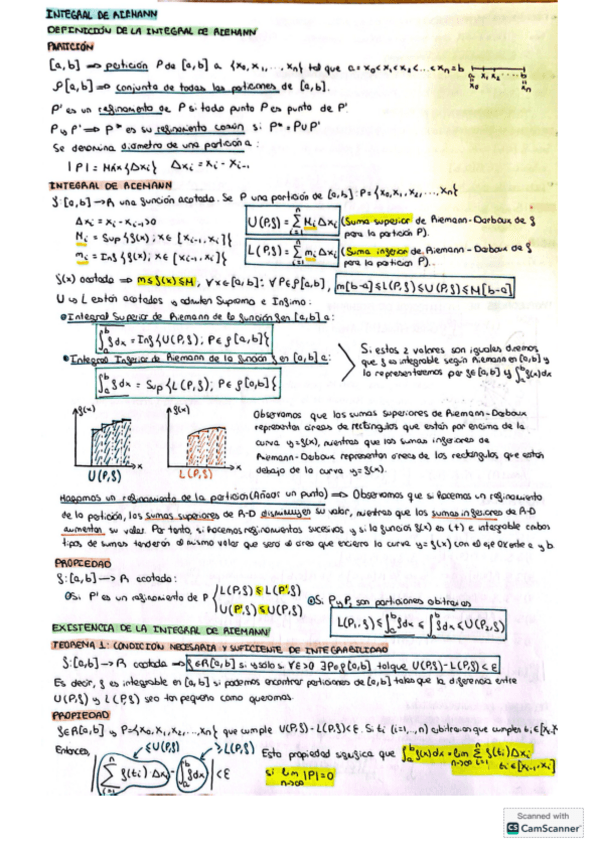 INTEGRAL DE RIEMANN
DEFINICIÓN DE LA INTEGRAL DE RIEMANN
PARTICIÓN
[a,b] ⟹ partición P de [a,b] a {x₀, x₁, ..., xₙ} tal que a = x₀ < x₁ < x₂ < ... < xₙ = b
a x₁ x₂ ... b
x₀ xₙ
P[a,b] ⟹ conjunto de todas las particiones de [a,b].
P' es un refinamiento de P si todo punto P es punto de P'.
P y P' ⟹ P* es su refinamiento común si P* = P∪P'
Se denomina diámetro de una partición a:
|P| = Máx{Δxᵢ} Δxᵢ = xᵢ - xᵢ₋₁
INTEGRAL DE RIEMANN
f: [a,b] → R una función acotada. Se P una partición de [a,b]: P = {x₀, x₁, x₂, ..., xₙ}
Δxᵢ = xᵢ - xᵢ₋₁ > 0
Mᵢ = Sup{f(x); x ∈ [xᵢ₋₁, xᵢ]}
mᵢ = Inf{f(x); x ∈ [xᵢ₋₁, xᵢ]}
U(P,f) = Σⁿᵢ₌₁ MᵢΔxᵢ (Suma superior de Riemann-Darboux de f
para la partición P).
L(P,f) = Σⁿᵢ₌₁ mᵢΔxᵢ (Suma inferior de Riemann-Darboux de f
para la partición P).
f(x) acotada ⟹ m≤f(x)≤M, ∀x∈[a,b]: ∀P∈P[a,b], m[b-a]≤L(P,f)≤U(P,f)≤M[b-a]
U y L están acotados y admiten Supremo e Ínfimo:
Integral Superior de Riemann de la función f en [a,b] a:
∫ₐᵇ fdx = Inf{U(P,f); P∈P[a,b]}
Integral Inferior de Riemann de la función f en [a,b] a:
∫ₐᵇ fdx = Sup{L(P,f); P∈P[a,b]}
Si estos 2 valores son iguales diremos
que f es integrable según Riemann en [a,b] y
lo representaremos por f∈[a,b] y ∫ₐᵇ f(x)dx
f(x) x
U(P,f)
f(x) x
L(P,f)
Observamos que las sumas superiores de Riemann-Darboux
representan áreas de rectángulos que están por encima de la
curva y=f(x), mientras que las sumas inferiores de
Riemann-Darboux representan áreas de los rectángulos que están
debajo de la curva y=f(x).
Hagamos un refinamiento de la partición (Añadir un punto) ⟹ Observamos que si hacemos un refinamiento
de la partición, las sumas superiores de R-D disminuyen su valor, mientras que las sumas inferiores de R-D
aumentan su valor. Por tanto, si hacemos refinamientos sucesivos y si la función f(x) es (+) e integrable ambos
tipos de sumas tenderán al mismo valor que será el área que encierra la curva y=f(x) con el eje OX entre a y b.
PROPIEDAD
f: [a,b] → R acotada:
Si P' es un refinamiento de P { L(P,f) ≤ L(P',f)
U(P',f) ≤ U(P,f)
Si P₁ y P₂ son particiones arbitrarias
L(P₁,f) ≤ ∫ₐᵇ fdx ≤ ∫ₐᵇ fdx ≤ U(P₂,f)
EXISTENCIA DE LA INTEGRAL DE RIEMANN
TEOREMA 1: CONDICIÓN NECESARIA Y SUFICIENTE DE INTEGRABILIDAD
f: [a,b] → R acotada ⟹ f∈R[a,b] si y solo si ∀ε>0 ∃P∈P[a,b] tal que U(P,f) - L(P,f) < ε
Es decir, f es integrable en [a,b] si podemos encontrar particiones de [a,b] tales que la diferencia entre
U(P,f) y L(P,f) sea tan pequeña como queramos.
PROPIEDAD
f∈R[a,b] y P={x₀, x₁, x₂, ..., xₙ} que cumple U(P,f) - L(P,f) < ε. Si tᵢ (i=1,...,n) arbitrarios que cumplen tᵢ∈[xᵢ
Entonces, ≤U(P,f) ≥L(P,f)
|Σⁿᵢ₌₁ f(tᵢ)Δxᵢ - ∫ₐᵇ fdx| < ε
Esta propiedad significa que ∫ₐᵇ f(x)dx = lim n→∞ Σⁿᵢ₌₁ f(tᵢ)Δxᵢ
si lim n→∞ |P| = 0 tᵢ∈[xᵢ₋₁, xᵢ]
Scanned with
CS CamScanner